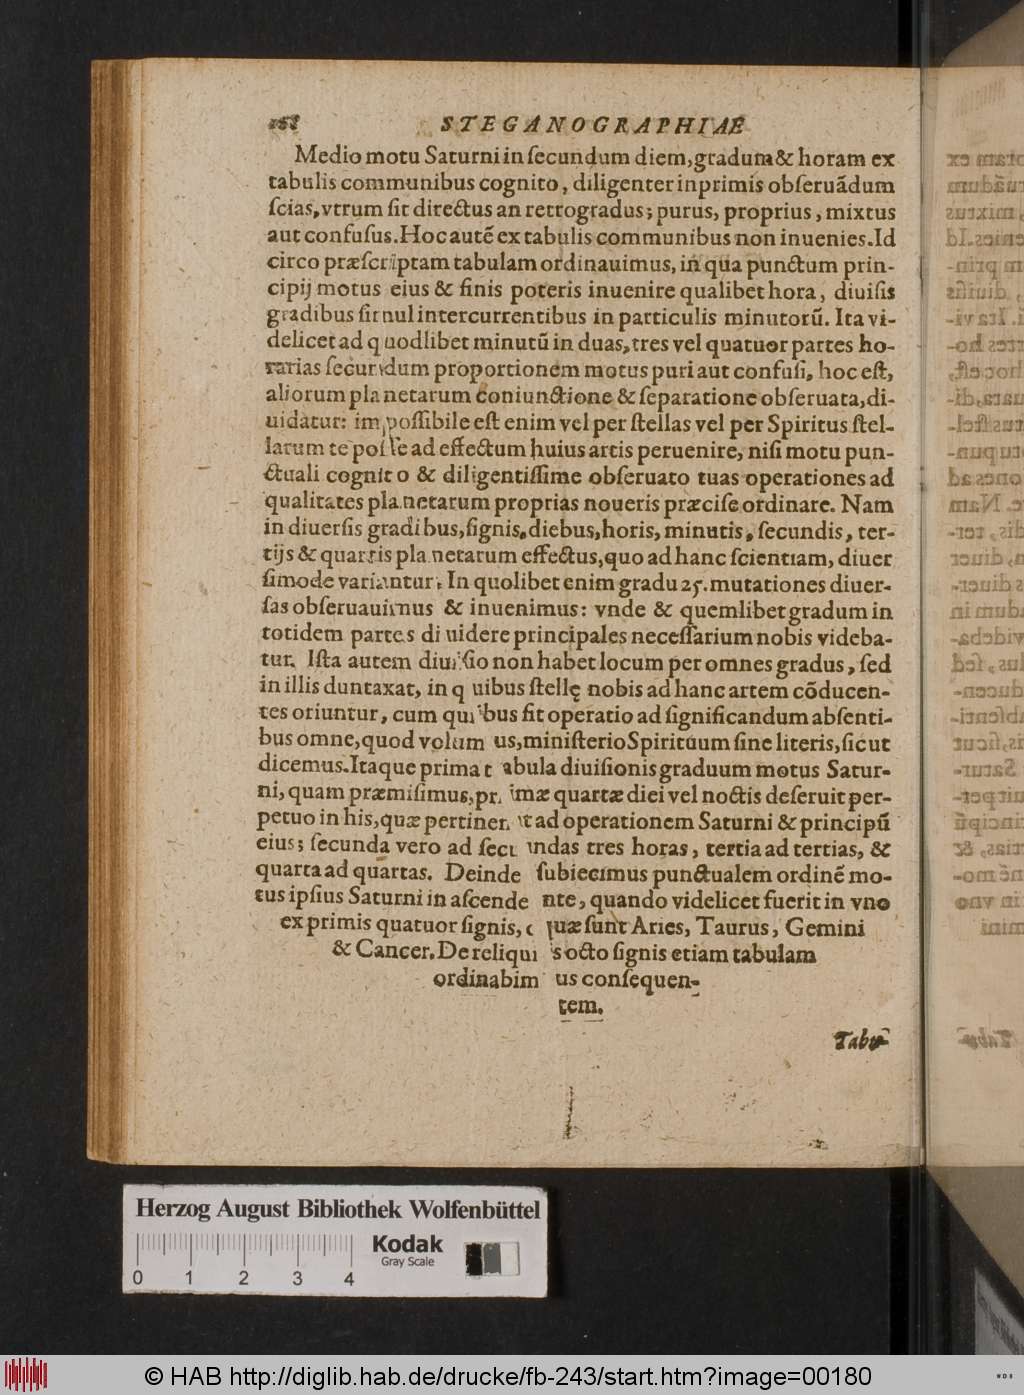 168 STEGANOGRAPHIAE
Medio motu Saturni in ſecundum diem, gradum & horam ex
tabulis communibus cognito, diligenter inprimis obſeruãdum
ſcias, vtrum ſit directus an retrogradus; purus, proprius, mixtus
aut confuſus. Hoc autẽ ex tabulis communibus non inuenies. Id
circo præſcriptam tabulam ordinauimus, in qua punctum prin-
cipij motus eius & finis poteris inuenire qualibet hora, diuiſis
gradibus ſimul intercurrentibus in particulis minutorũ. Ita vi-
delicet ad quodlibet minutũ in duas, tres vel quatuor partes ho-
rarias ſecundum proportionem motus puri aut confuſi, hoc eſt,
aliorum planetarum coniunctione & ſeparatione obſeruata, di-
uidatur: impoſſibile eſt enim vel per ſtellas vel per Spiritus ſtel-
larum te poſſe ad effectum huius artis peruenire, niſi motu pun-
ctuali cognito & diligentiſſime obſeruato tuas operationes ad
qualitates planetarum proprias noueris præciſe ordinare. Nam
in diuerſis gradibus, ſignis, diebus, horis, minutis, ſecundis, ter-
tijs & quartis planetarum effectus, quo ad hanc ſcientiam, diuer
ſimode variantur. In quolibet enim gradu 25. mutationes diuer-
ſas obſeruauimus & inuenimus: vnde & quemlibet gradum in
totidem partes diuidere principales neceſſarium nobis videba-
tur. Iſta autem diuiſio non habet locum per omnes gradus, ſed
in illis duntaxat, in quibus ſtellę nobis ad hanc artem cõducen-
tes oriuntur, cum quibus fit operatio ad ſignificandum abſenti-
bus omne, quod volumus, miniſterio Spirituum ſine literis, ſicut
dicemus. Itaque prima tabula diuiſionis graduum motus Satur-
ni, quam præmiſimus, primæ quartæ diei vel noctis deſeruit per-
petuo in his, quæ pertinent ad operationem Saturni & principũ
eius; ſecunda vero ad ſecundas tres horas, tertia ad tertias, &
quarta ad quartas. Deinde ſubiecimus punctualem ordinẽ mo-
tus ipſius Saturni in aſcendente, quando videlicet fuerit in vno
ex primis quatuor ſignis, quæ ſunt Aries, Taurus, Gemini
& Cancer. De reliquis octo ſignis etiam tabulam
ordinabimus conſequen-
tem.
Tabu-
Herzog August Bibliothek Wolfenbüttel
Kodak
Gray Scale
0 1 2 3 4
© HAB http://diglib.hab.de/drucke/fb-243/start.htm?image=00180